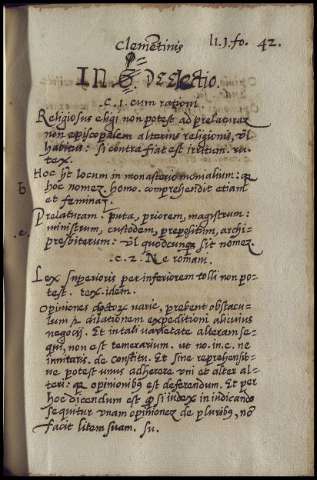 Clementinis li.j.fo. 42.
IN De Electio.
.c.1. cum rationi.
Religiosus eligi non potest ad prelaturaz
non episcopalem alterius religionis, vl
habitus: si contra fiat est irritum. ut
tex.
b Hoc ht locum in monasterio monialium: q̃
hoc nomez. homo. comprehendit etiam
et feminaz.
Prelaturam. puta, priorem, magistrum:
.c. ministrum, custodem, prepositum, archi-
presbiterum: vl quodcunq sit nomez.
.c.2. Ne romãni.
Lex superioris per inferiorem tolli non po-
test. tex. idem.
Opiniones doctoz varie, prebent obstacu-
lum dilationem expeditioni alicuius
negocij. Et in tali varietate alteram se-
qui, non est temerarium. ut no. in c. ne
innitaris. de constitu. Et sine reprehensio-
ne potest unus adherere vni et alter al-
teri: q opinionibꝰ est deferendum. Et per
hoc dicendum est q si iudex in iudicando
sequitur vnam opinionez de pluribꝰ, nõ
facit litem suam. su.